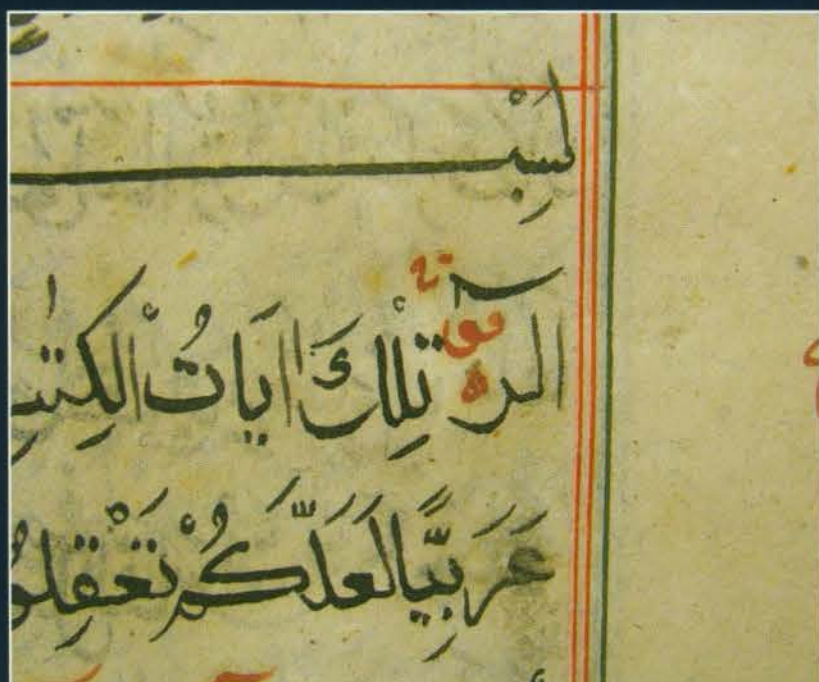 بِسْـ
الٓر تِلْكَ اٰيَاتُ الْكِتٰبِ
عَرَبِيًّا لَعَلَّكُمْ تَعْقِلُو